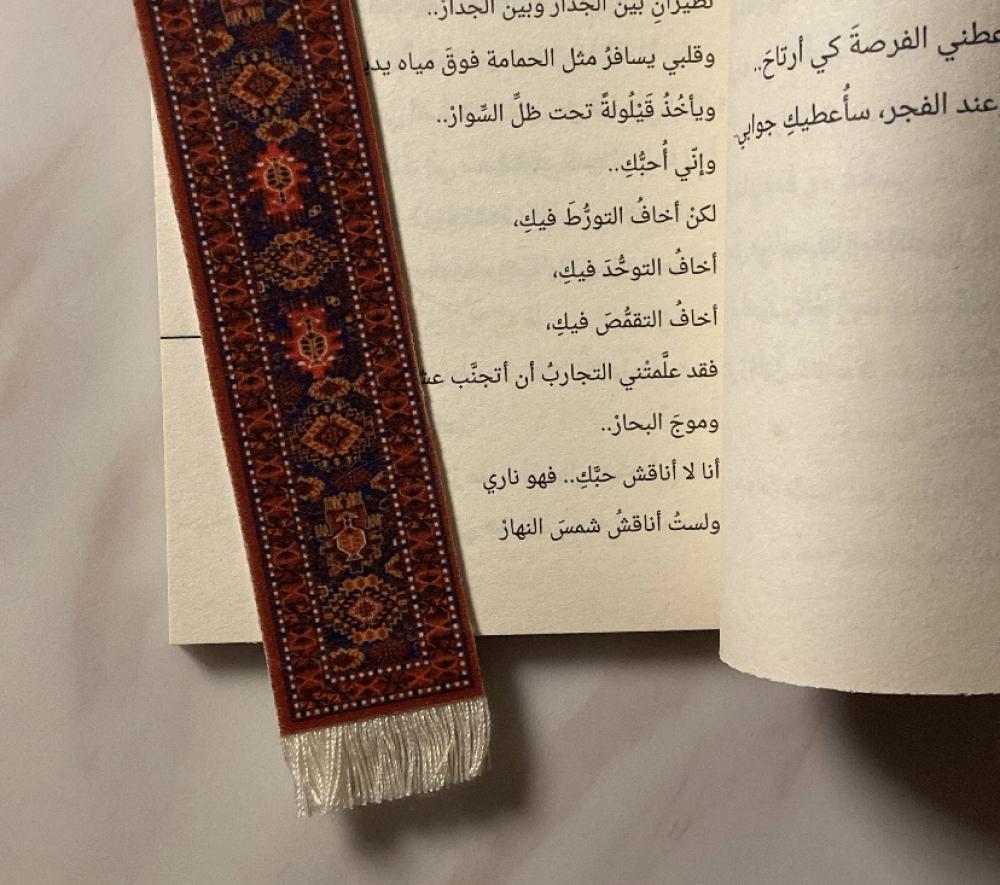 عطني الفرصةَ كي أرتاحَ..
عند الفجر، سأُعطيكِ جوابي
تطيرانِ بين الجدار وبين الجدارْ..
وقلبي يسافرُ مثل الحمامة فوقَ مياه يد
ويأخُذُ قَيْلُولةً تحت ظلِّ السِّوارْ..
وإنّي أُحبُّكِ..
لكنْ أخافُ التورُّطَ فيكِ،
أخافُ التوحُّدَ فيكِ،
أخافُ التقمُّصَ فيكِ،
فقد علَّمتْني التجاربُ أن أتجنَّب عش
وموجَ البحارْ..
أنا لا أناقش حبَّكِ.. فهو ناري
ولستُ أناقشُ شمسَ النهارْ